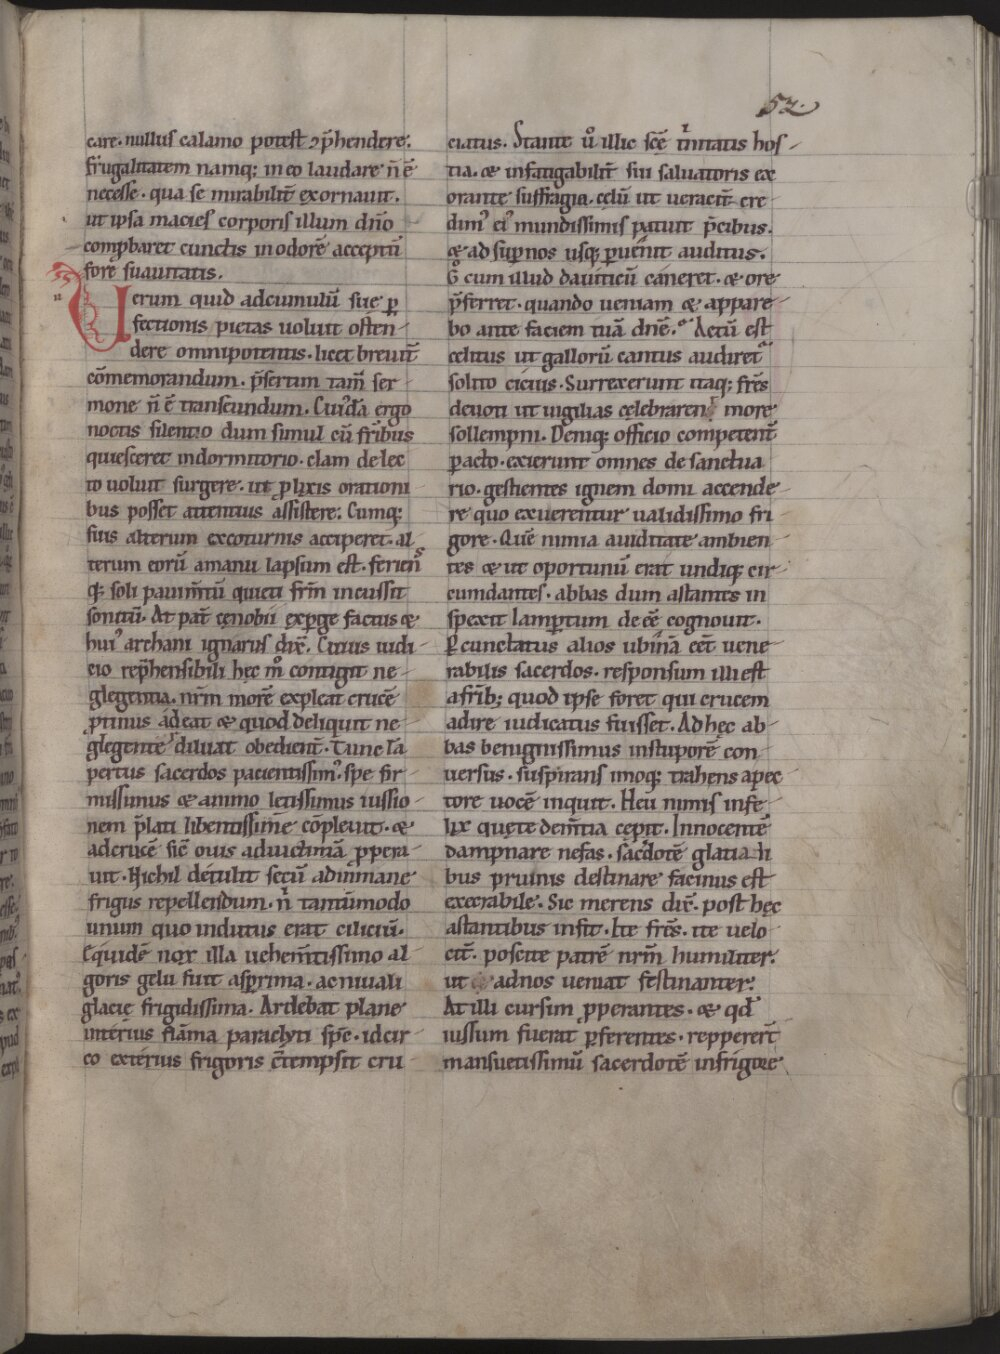 52.
care. nullus calamo potest ↄp̄hendere.
frugalitatem namq; in eo laudare n̄ ē
necesse. qua se mirabilit̄ exornauit.
ut ipsa macies corporis illum dn̄o
comp̱baret cunctis in odorē acceptū
fore suauitatis.
Uerum quid ad cumulū sue ꝑ
fectionis pietas uoluit osten-
dere omnipotentis. licet breuit̄
cōmemorandum. p̄sertim tam̄ ser-
mone n̄ ē transeundum. Cuidā ergo
noctis silentio dum simul cū fr̄ibus
quiesceret in dormitorio. clam de lec
to uoluit surgere. ut ꝓlixis orationi-
bus posset attentius assistere. Cumq;
suis alterum ex coturnis acciperet. al-
terum eorū amanu lapsum est. feriens
q; soli pauim̄tū quieti fr̄m incussit
sonitū. At pat̄ cenobii exꝑge factus ⁊
hui᾽ archani ignarus dix̄. Cuius iudi-
cio rep̄hensibili hęc m̊ contigit ne-
glegentia. nr̄m morē expleat crucē
ꝓtinus adeat ⁊ quod deliquit ne-
glegenter diluat obedient̄. Tunc lā
pertus sacerdos pacientissim᾽. spe fir-
missimus ⁊ animo letissimus iussio-
nem p̄lati libentissime cōpleuit. ⁊
ad crucē sic̄ ouis ad uictimā ꝓpera-
uit. Nichil detulit secū ad inmane
frigus repellendum. nͥ tantūmodo
unum quo indutus erat ciliciū.
Equidē nox illa uehem̄tissimo al-
goris gelu fuit asꝑrima. ac niuali
glacie frigidissima. Ardebat plane
interius flāma paraclyti sp̄c. idcir-
co exterius frigoris c̄tempsit cru-
ciatus. Stante ů illic scē tͥnitatis hos-
tia. ⁊ infatigabilit̄ sui saluatoris ex
orante suffragia. celū ut ueracit̄ cre-
dim᾽ ei᾽ mundissimis patuit p̄cibus.
⁊ ad suꝑnos usq; ꝑuenit auditus.
G̊ cum illud dauiticū caneret. ⁊ ore
p̄ferret. quando ueniam ⁊ appare-
bo ante faciem tuā dn̄e. Actū est
celitus ut gallorū cantus audiret᾽
solito cicius. Surrexerunt itaq; fr̄es
deuoti ut uigilias celebrarent more
sollempni. Deniq; officio competent̄
ꝑacto. exierunt omnes de sanctua
rio. gestientes ignem domi accende-
re quo exuerentur ualidissimo fri-
gore. Quē nimia auiditate ambien-
tes ⁊ ut oportunū erat undiq; cir-
cumdantes. abbas dum astantes in
spexit lamꝑtum deēē cognouit.
Percunctatus alios ubinā eēt uene-
rabilis sacerdos. responsum illi est
a fr̄ib; quod ipse foret qui crucem
adire iudicatus fuisset. Ad hęc ab-
bas benignissimus in stuporē con-
uersus. suspirans imoq; trahens a pec-
tore uocē inquit. Heu nimis infe-
lix que te dem̄tia cepit. Innocentē
dampnare nefas. sacdotē glatiali
bus pruinis destinare facinus est
execrabile. Sic merens dix̄. post hęc
astantibus infit. Ite fr̄es. ite uelo-
cit̄. poscite patrē nr̄m humiliter.
ut ad nos ueniat festinanter.
At illi cursim ꝓperantes. ⁊ qd̄
iussum fuerat ꝑferentes. reppererт̄
mansuetissimū sacerdotē in frigore